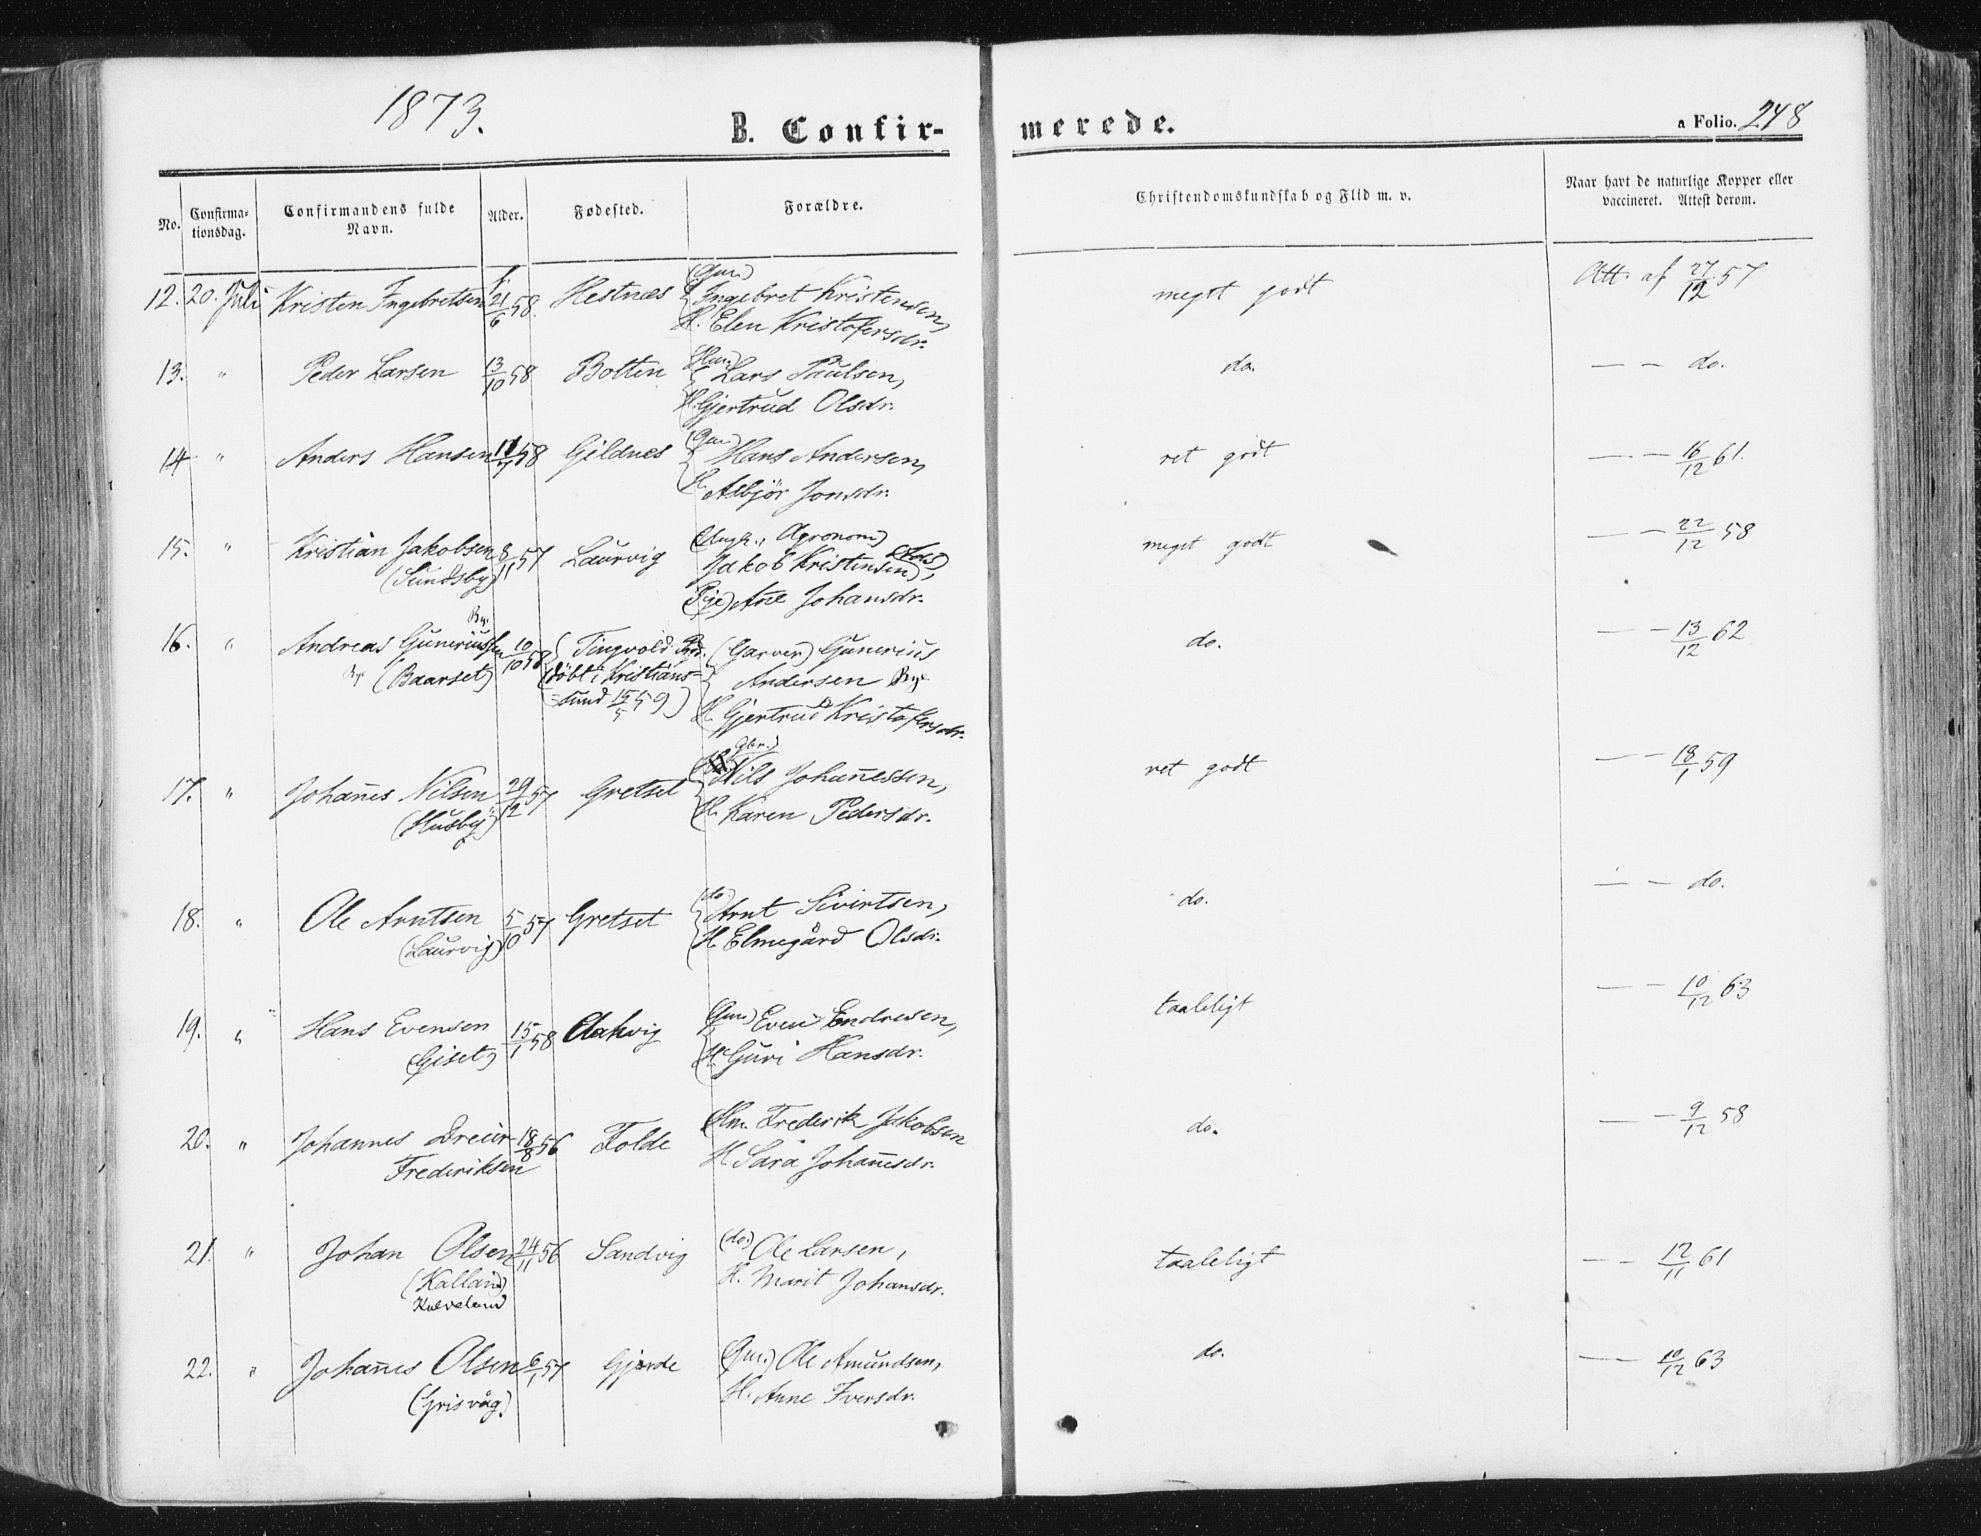 1873.
B. Confir-
merede.
a Folio. 248
No.
Confirma-
tionsdag.
Confirmandens fulde
Navn.
Alder.
Fødested.
Forældre.
Christendomskundskab og Flid m. v.
Naar havt de naturlige Kopper eller
vaccineret. Attest derom.
12. 20. Juli Kristen Ingebretsen f. 21/6 58. Hestnæs (Gm.) Ingebret Kristensen,
H. Elen Kristofersdr.
meget godt Att. af 27/12 57
13. " Peder Larsen 13/10 58 Botten (Hm.) Lars Paulsen,
H. Gjertrud Olsdr.
do. — — do.
14 " Anders Hansen 58 Gildnes (Gm.) Hans Andersen,
H. Asbjör Jonsdr.
ret godt — — 16/12 61.
15. " Kristian Jakobsen 8/11 57 Laurvig (Ungk., Agronom)
(Sundsby) Jakob Kristensen
(Pige) Ane Johansdr.
meget godt — — 22/12 58
16. " Andreas Guneriussen Bye 10/10 58 Tingvold Prd. (Garver) Gunerius
Bye (Baarset) döbt i Kristians- Andersen Bye
sund 15/5 59) H. Gjertrud Kristofersdr.
do. — — 13/12 62
17. " Johannes Nilsen 29/12 57 Gretset (Gbr.) Nils Johannessen,
(Husby) H. Karen Pedersdr.
ret godt — — 18/1 59
18. " Ole Arntsen 5/10 57 Gretset (do) Arnt Sivertsen,
(Laurvig) H. Elmegård Olsdr.
do. — — do.
19. " Hans Evensen 15/1 58 Aakvig (Gm.) Even Endresen,
(Giset) H. Guri Hansdr.
taaleligt — — 10/12 63
20. " Johannes Dreier 18/8 56 Folde Hm. Frederik Jakobsen
Frederiksen H. Sara Johannesdr.
do. — — 9/12 58
21. " Johan Olsen 24/11 56 Sandvig (do.) Ole Larsen,
(Kalland) H. Marit Johansdr.
Kalveland
taaleligt — — 12/11 61
22. " Johannes Olsen 6/1 57 Gjerde (Gm.) Ole Amundsen,
(Grisvåg) H. Anne Iversdr.
do. — — 10/12 63